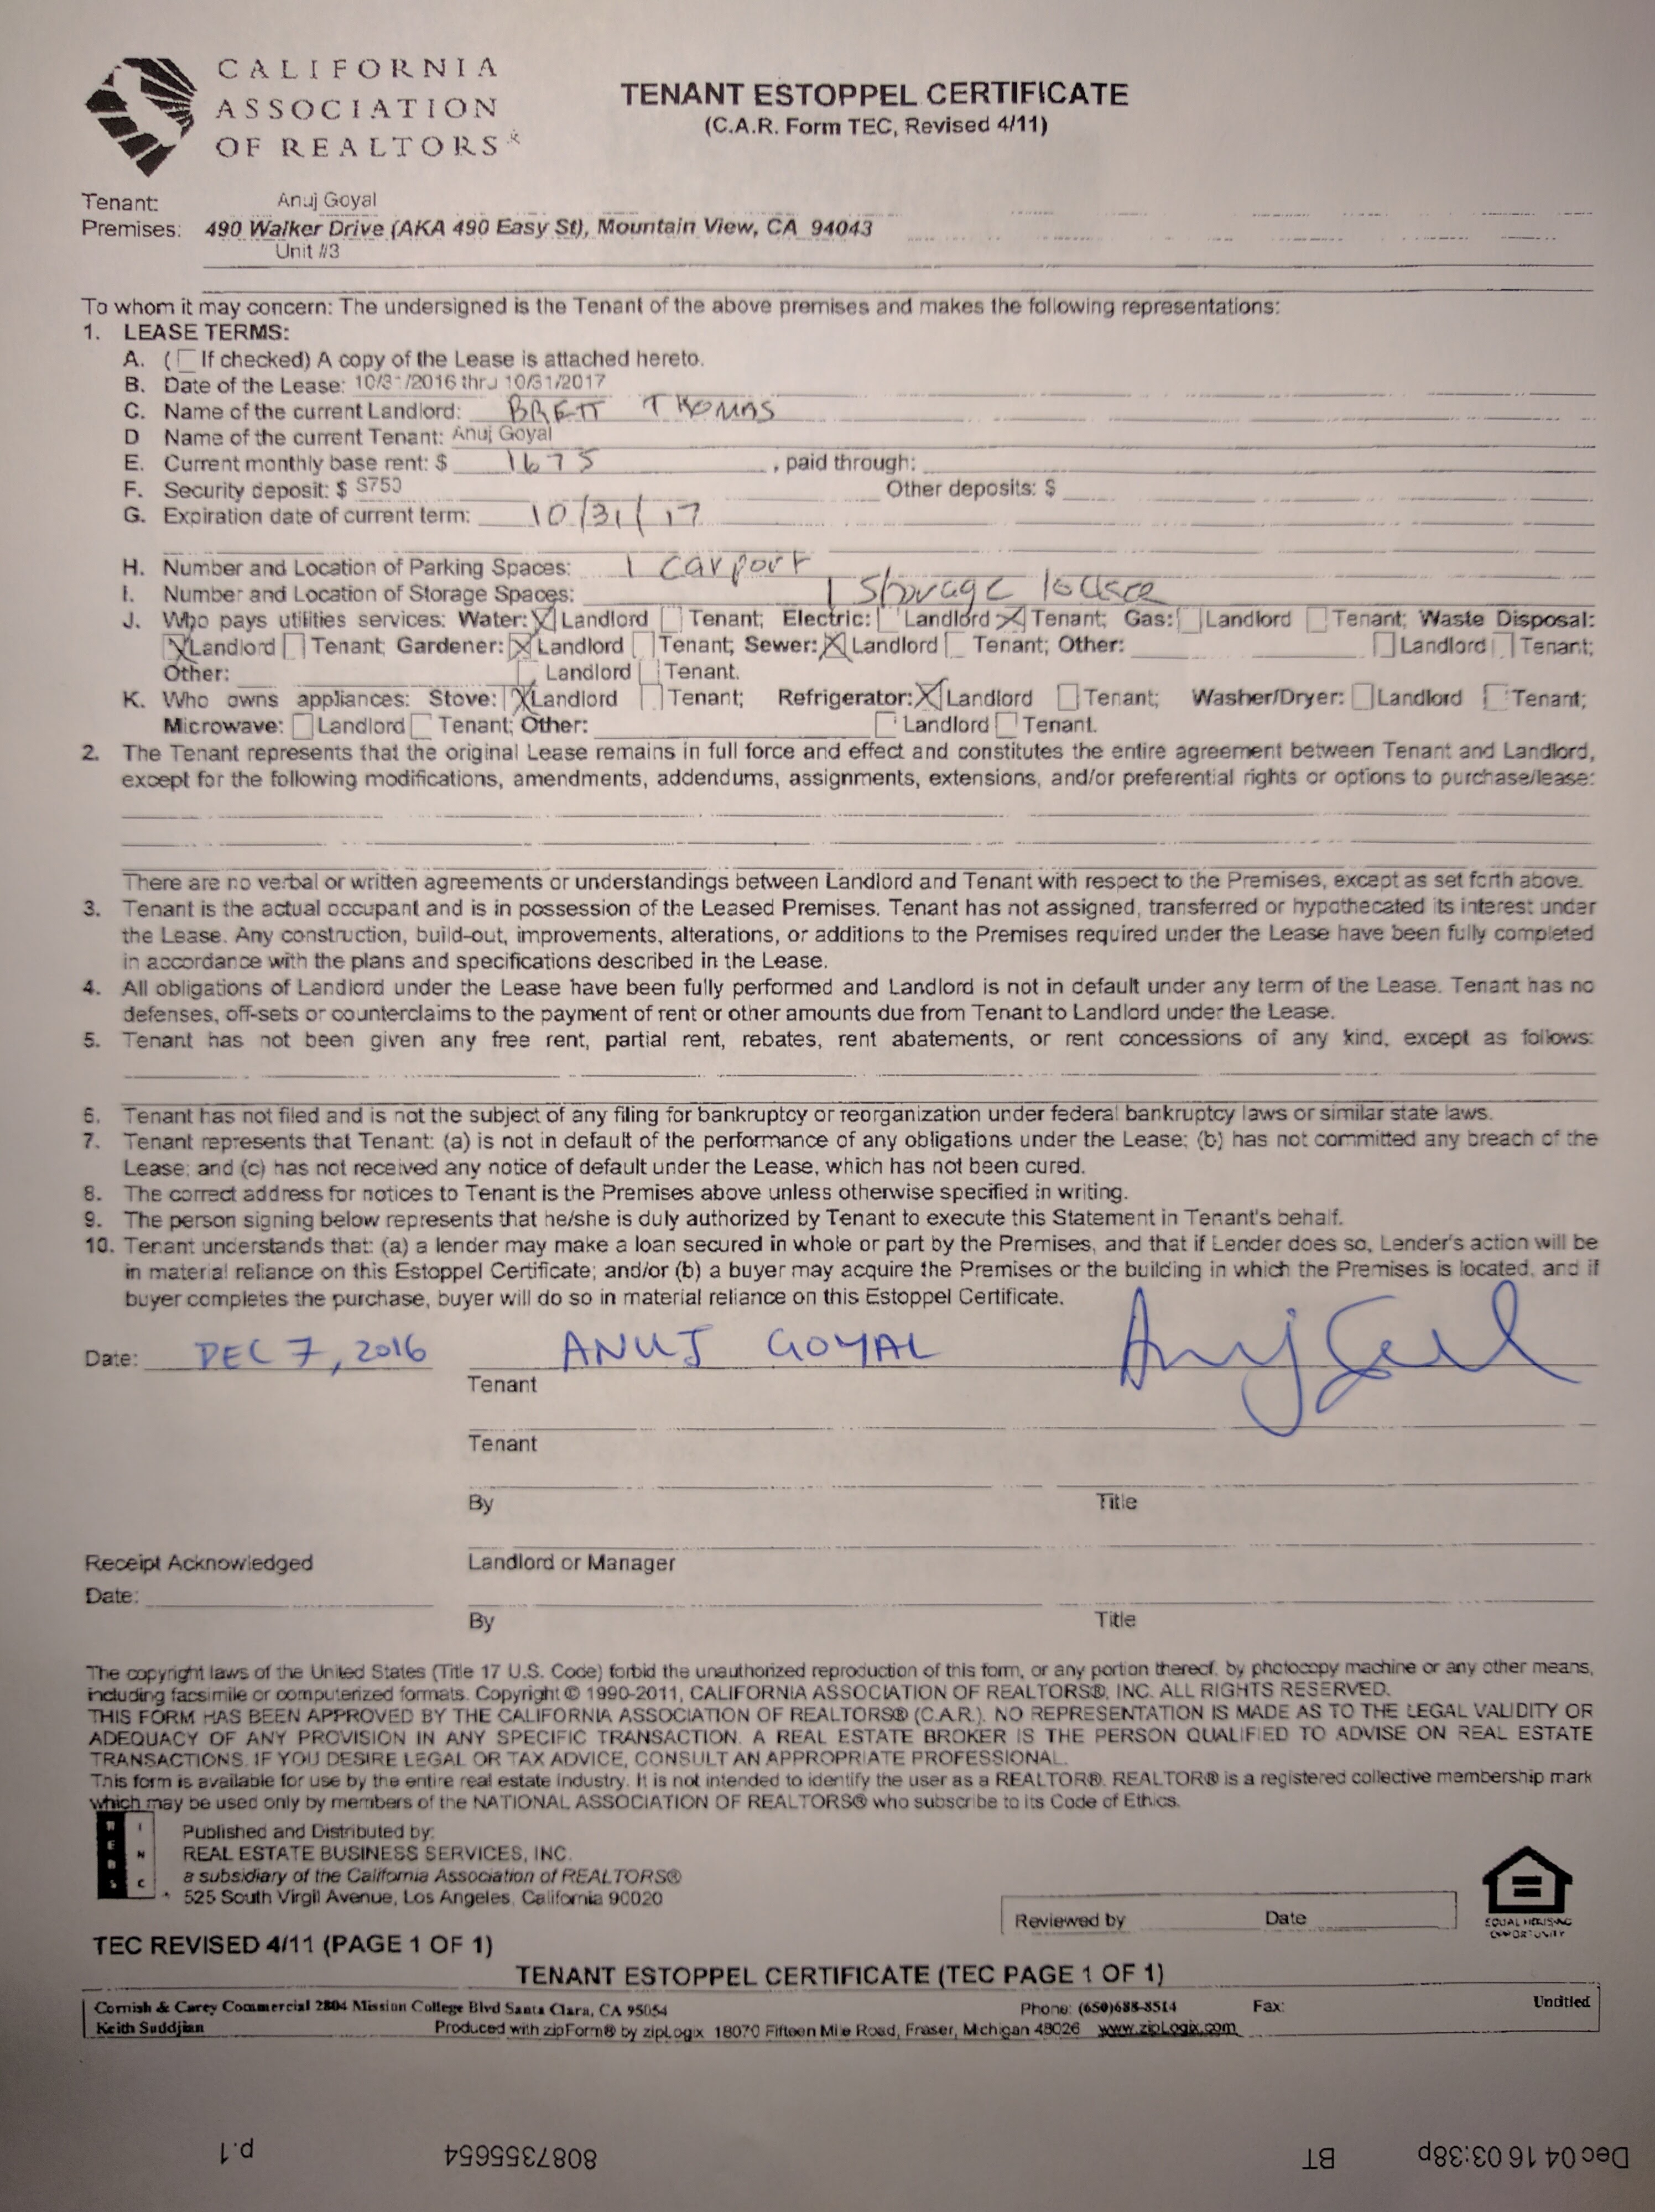 CALIFORNIA
ASSOCIATION
OF REALTORS®
TENANT ESTOPPEL CERTIFICATE
(C.A.R. Form TEC, Revised 4/11)
Tenant: Anuj Goyal
Premises: 490 Walker Drive (AKA 490 Easy St), Mountain View, CA 94043
Unit #3
To whom it may concern: The undersigned is the Tenant of the above premises and makes the following representations:
1. LEASE TERMS:
A. ( If checked) A copy of the Lease is attached hereto.
B. Date of the Lease: 10/31/2016 thru 10/31/2017
C. Name of the current Landlord: BRETT THOMAS
D Name of the current Tenant: Anuj Goyal
E. Current monthly base rent: $ 1675 , paid through:
F. Security deposit: $ $750 Other deposits: $
G. Expiration date of current term: 10/31/17
H. Number and Location of Parking Spaces: 1 carport
I. Number and Location of Storage Spaces: 1 storage
J. Who pays utilities services: Water: X Landlord Tenant; Electric: Landlord X Tenant; Gas: Landlord Tenant; Waste Disposal:
X Landlord Tenant; Gardener: X Landlord Tenant; Sewer: X Landlord Tenant; Other: Landlord Tenant;
Other: Landlord Tenant.
K. Who owns appliances: Stove: X Landlord Tenant; Refrigerator: X Landlord Tenant; Washer/Dryer: Landlord Tenant;
Microwave: Landlord Tenant; Other: Landlord Tenant.
2. The Tenant represents that the original Lease remains in full force and effect and constitutes the entire agreement between Tenant and Landlord,
except for the following modifications, amendments, addendums, assignments, extensions, and/or preferential rights or options to purchase/lease:
There are no verbal or written agreements or understandings between Landlord and Tenant with respect to the Premises, except as set forth above.
3. Tenant is the actual occupant and is in possession of the Leased Premises. Tenant has not assigned, transferred or hypothecated its interest under
the Lease. Any construction, build-out, improvements, alterations, or additions to the Premises required under the Lease have been fully completed
in accordance with the plans and specifications described in the Lease.
4. All obligations of Landlord under the Lease have been fully performed and Landlord is not in default under any term of the Lease. Tenant has no
defenses, off-sets or counterclaims to the payment of rent or other amounts due from Tenant to Landlord under the Lease.
5. Tenant has not been given any free rent, partial rent, rebates, rent abatements, or rent concessions of any kind, except as follows:
6. Tenant has not filed and is not the subject of any filing for bankruptcy or reorganization under federal bankruptcy laws or similar state laws.
7. Tenant represents that Tenant: (a) is not in default of the performance of any obligations under the Lease; (b) has not committed any breach of the
Lease; and (c) has not received any notice of default under the Lease, which has not been cured.
8. The correct address for notices to Tenant is the Premises above unless otherwise specified in writing.
9. The person signing below represents that he/she is duly authorized by Tenant to execute this Statement in Tenant's behalf.
10. Tenant understands that: (a) a lender may make a loan secured in whole or part by the Premises, and that if Lender does so, Lender's action will be
in material reliance on this Estoppel Certificate; and/or (b) a buyer may acquire the Premises or the building in which the Premises is located, and if
buyer completes the purchase, buyer will do so in material reliance on this Estoppel Certificate.
Date: DEC 7, 2016 ANUJ GOYAL
Tenant
Tenant
By Title
Receipt Acknowledged Landlord or Manager
Date:
By Title
The copyright laws of the United States (Title 17 U.S. Code) forbid the unauthorized reproduction of this form, or any portion thereof, by photocopy machine or any other means,
including facsimile or computerized formats. Copyright © 1990-2011, CALIFORNIA ASSOCIATION OF REALTORS®, INC. ALL RIGHTS RESERVED.
THIS FORM HAS BEEN APPROVED BY THE CALIFORNIA ASSOCIATION OF REALTORS® (C.A.R.). NO REPRESENTATION IS MADE AS TO THE LEGAL VALIDITY OR
ADEQUACY OF ANY PROVISION IN ANY SPECIFIC TRANSACTION. A REAL ESTATE BROKER IS THE PERSON QUALIFIED TO ADVISE ON REAL ESTATE
TRANSACTIONS. IF YOU DESIRE LEGAL OR TAX ADVICE, CONSULT AN APPROPRIATE PROFESSIONAL.
This form is available for use by the entire real estate industry. It is not intended to identify the user as a REALTOR®. REALTOR® is a registered collective membership mark
which may be used only by members of the NATIONAL ASSOCIATION OF REALTORS® who subscribe to its Code of Ethics.
Published and Distributed by:
REAL ESTATE BUSINESS SERVICES, INC.
a subsidiary of the California Association of REALTORS®
525 South Virgil Avenue, Los Angeles, California 90020
Reviewed by Date
EQUAL HOUSING
OPPORTUNITY
TEC REVISED 4/11 (PAGE 1 OF 1)
TENANT ESTOPPEL CERTIFICATE (TEC PAGE 1 OF 1)
Cornish & Carey Commercial 2804 Mission College Blvd Santa Clara, CA 95054 Phone: (650)688-8514 Fax: Untitled
Keith Suddjian Produced with zipForm® by zipLogix 18070 Fifteen Mile Road, Fraser, Michigan 48026 www.zipLogix.com
Dec 04 16 03:38p BT 8087355654 p.1